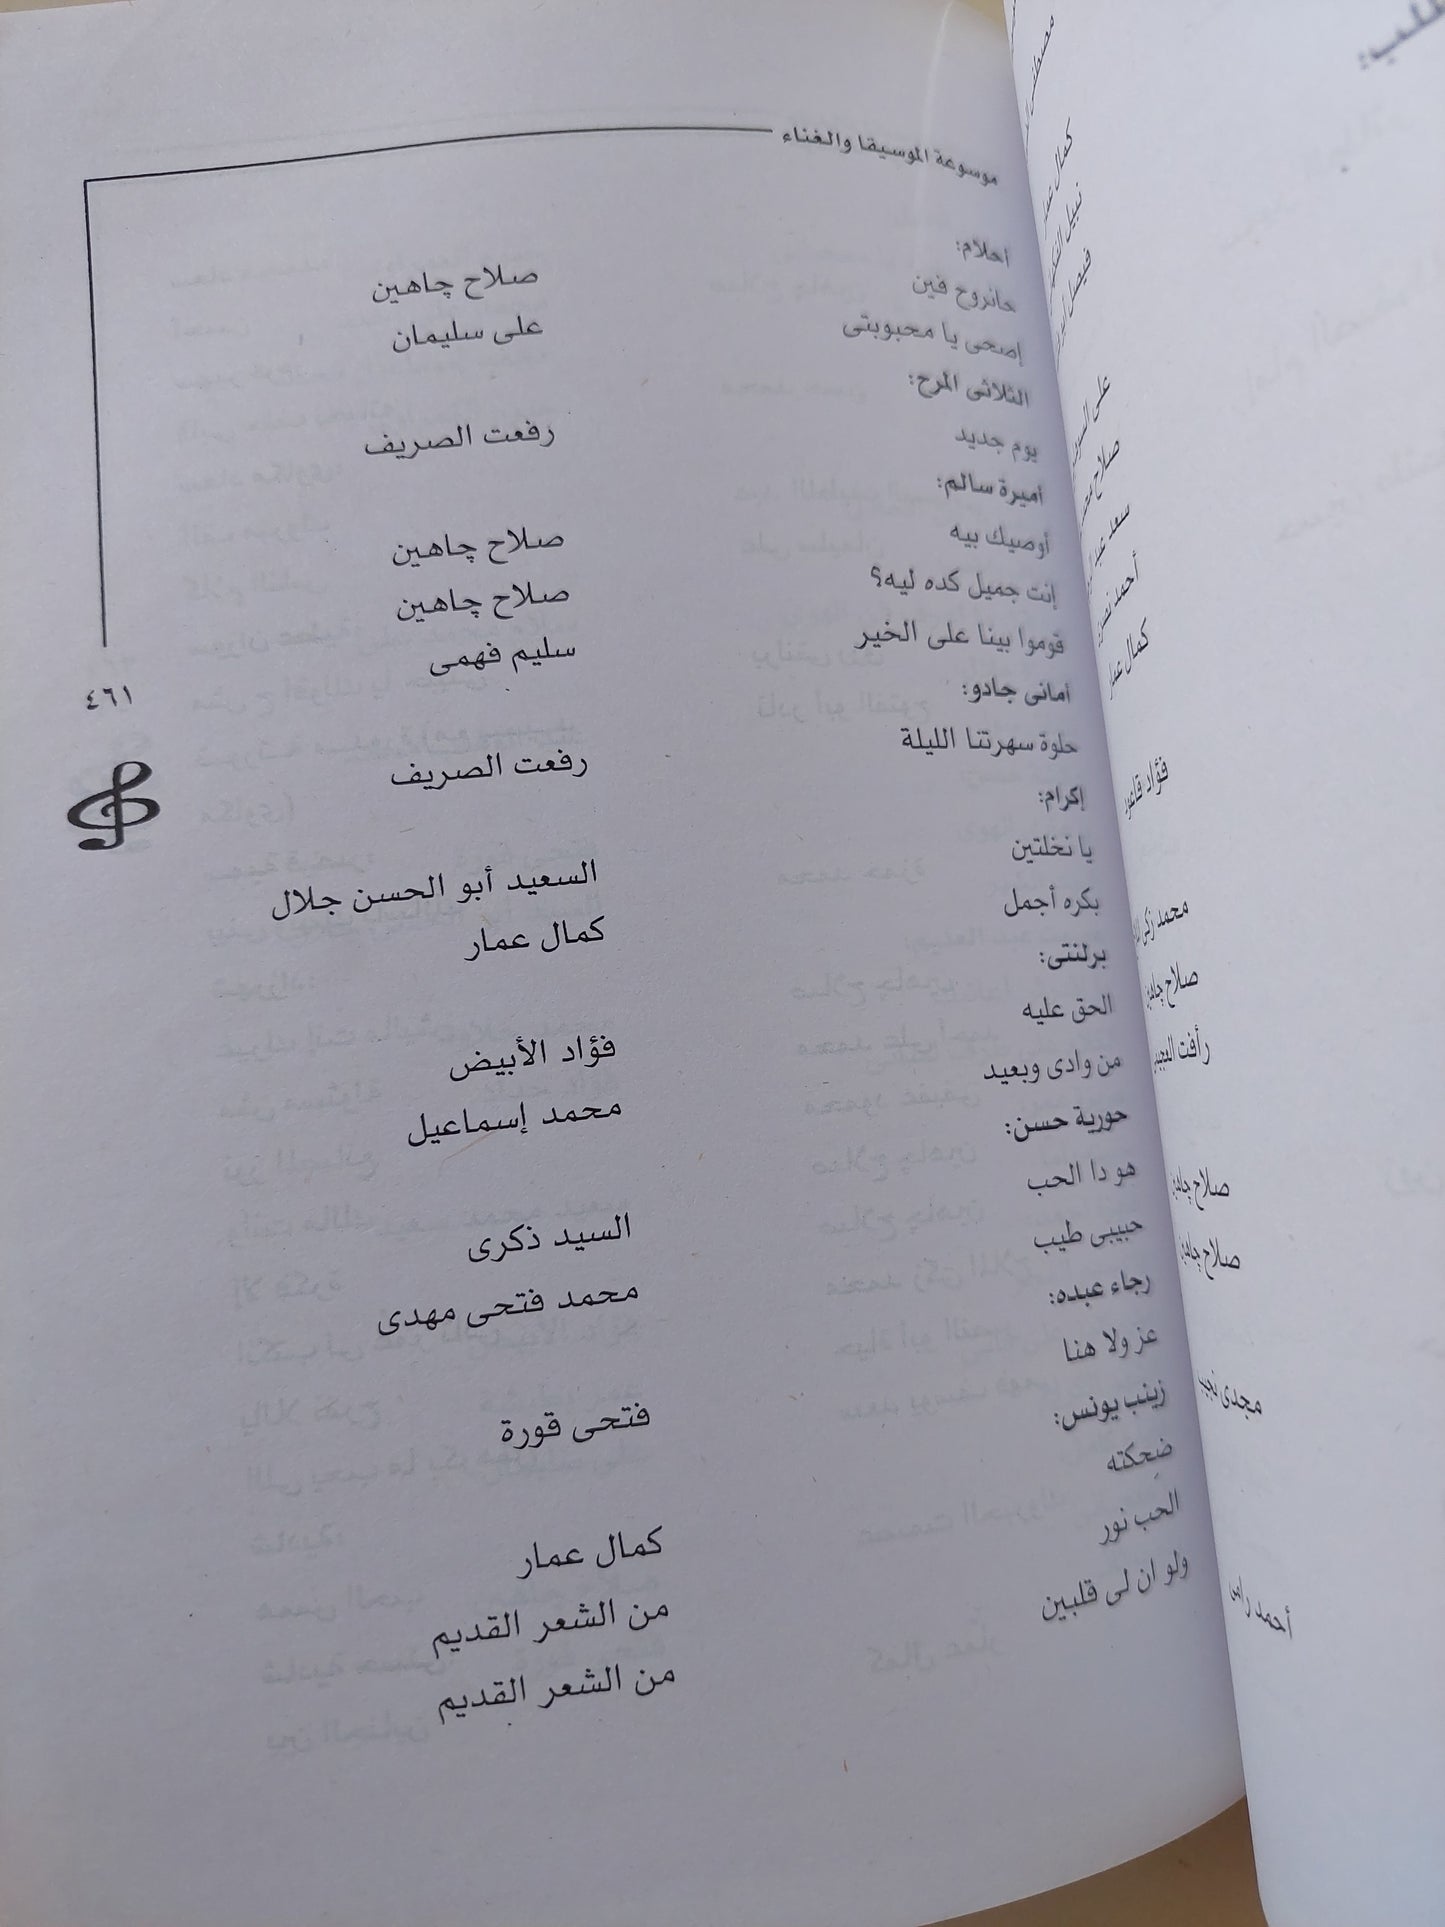 موسوعة الموسيقا والغناء
أحلام:
حانروح فين صلاح چاهين
إصحى يا محبوبتى على سليمان
الثلاثى المرح:
يوم جديد رفعت الصريف
أميرة سالم:
أوصيك بيه صلاح چاهين
إنت جميل كده ليه؟ صلاح چاهين
قوموا بينا على الخير سليم فهمى
أمانى جادو:
حلوة سهرتنا الليلة رفعت الصريف
إكرام:
يا نخلتين السعيد أبو الحسن جلال
بكره أجمل كمال عمار
برلنتى:
الحق عليه فؤاد الأبيض
من وادى وبعيد محمد إسماعيل
حورية حسن:
هو دا الحب السيد ذكرى
حبيبى طيب محمد فتحى مهدى
رجاء عبده:
عز ولا هنا فتحى قورة
زينب يونس:
ضحكته كمال عمار
الحب نور من الشعر القديم
ولو ان لى قلبين من الشعر القديم
٤٦١
كمال عمار
نبيل
فيصل
على
صلاح
سعد
أحمد
كمال عمار
فؤاد قاعود
محمد زكى
صلاح چاهين
رأفت
صلاح چاهين
صلاح چاهين
مجدى نجيب
أحمد